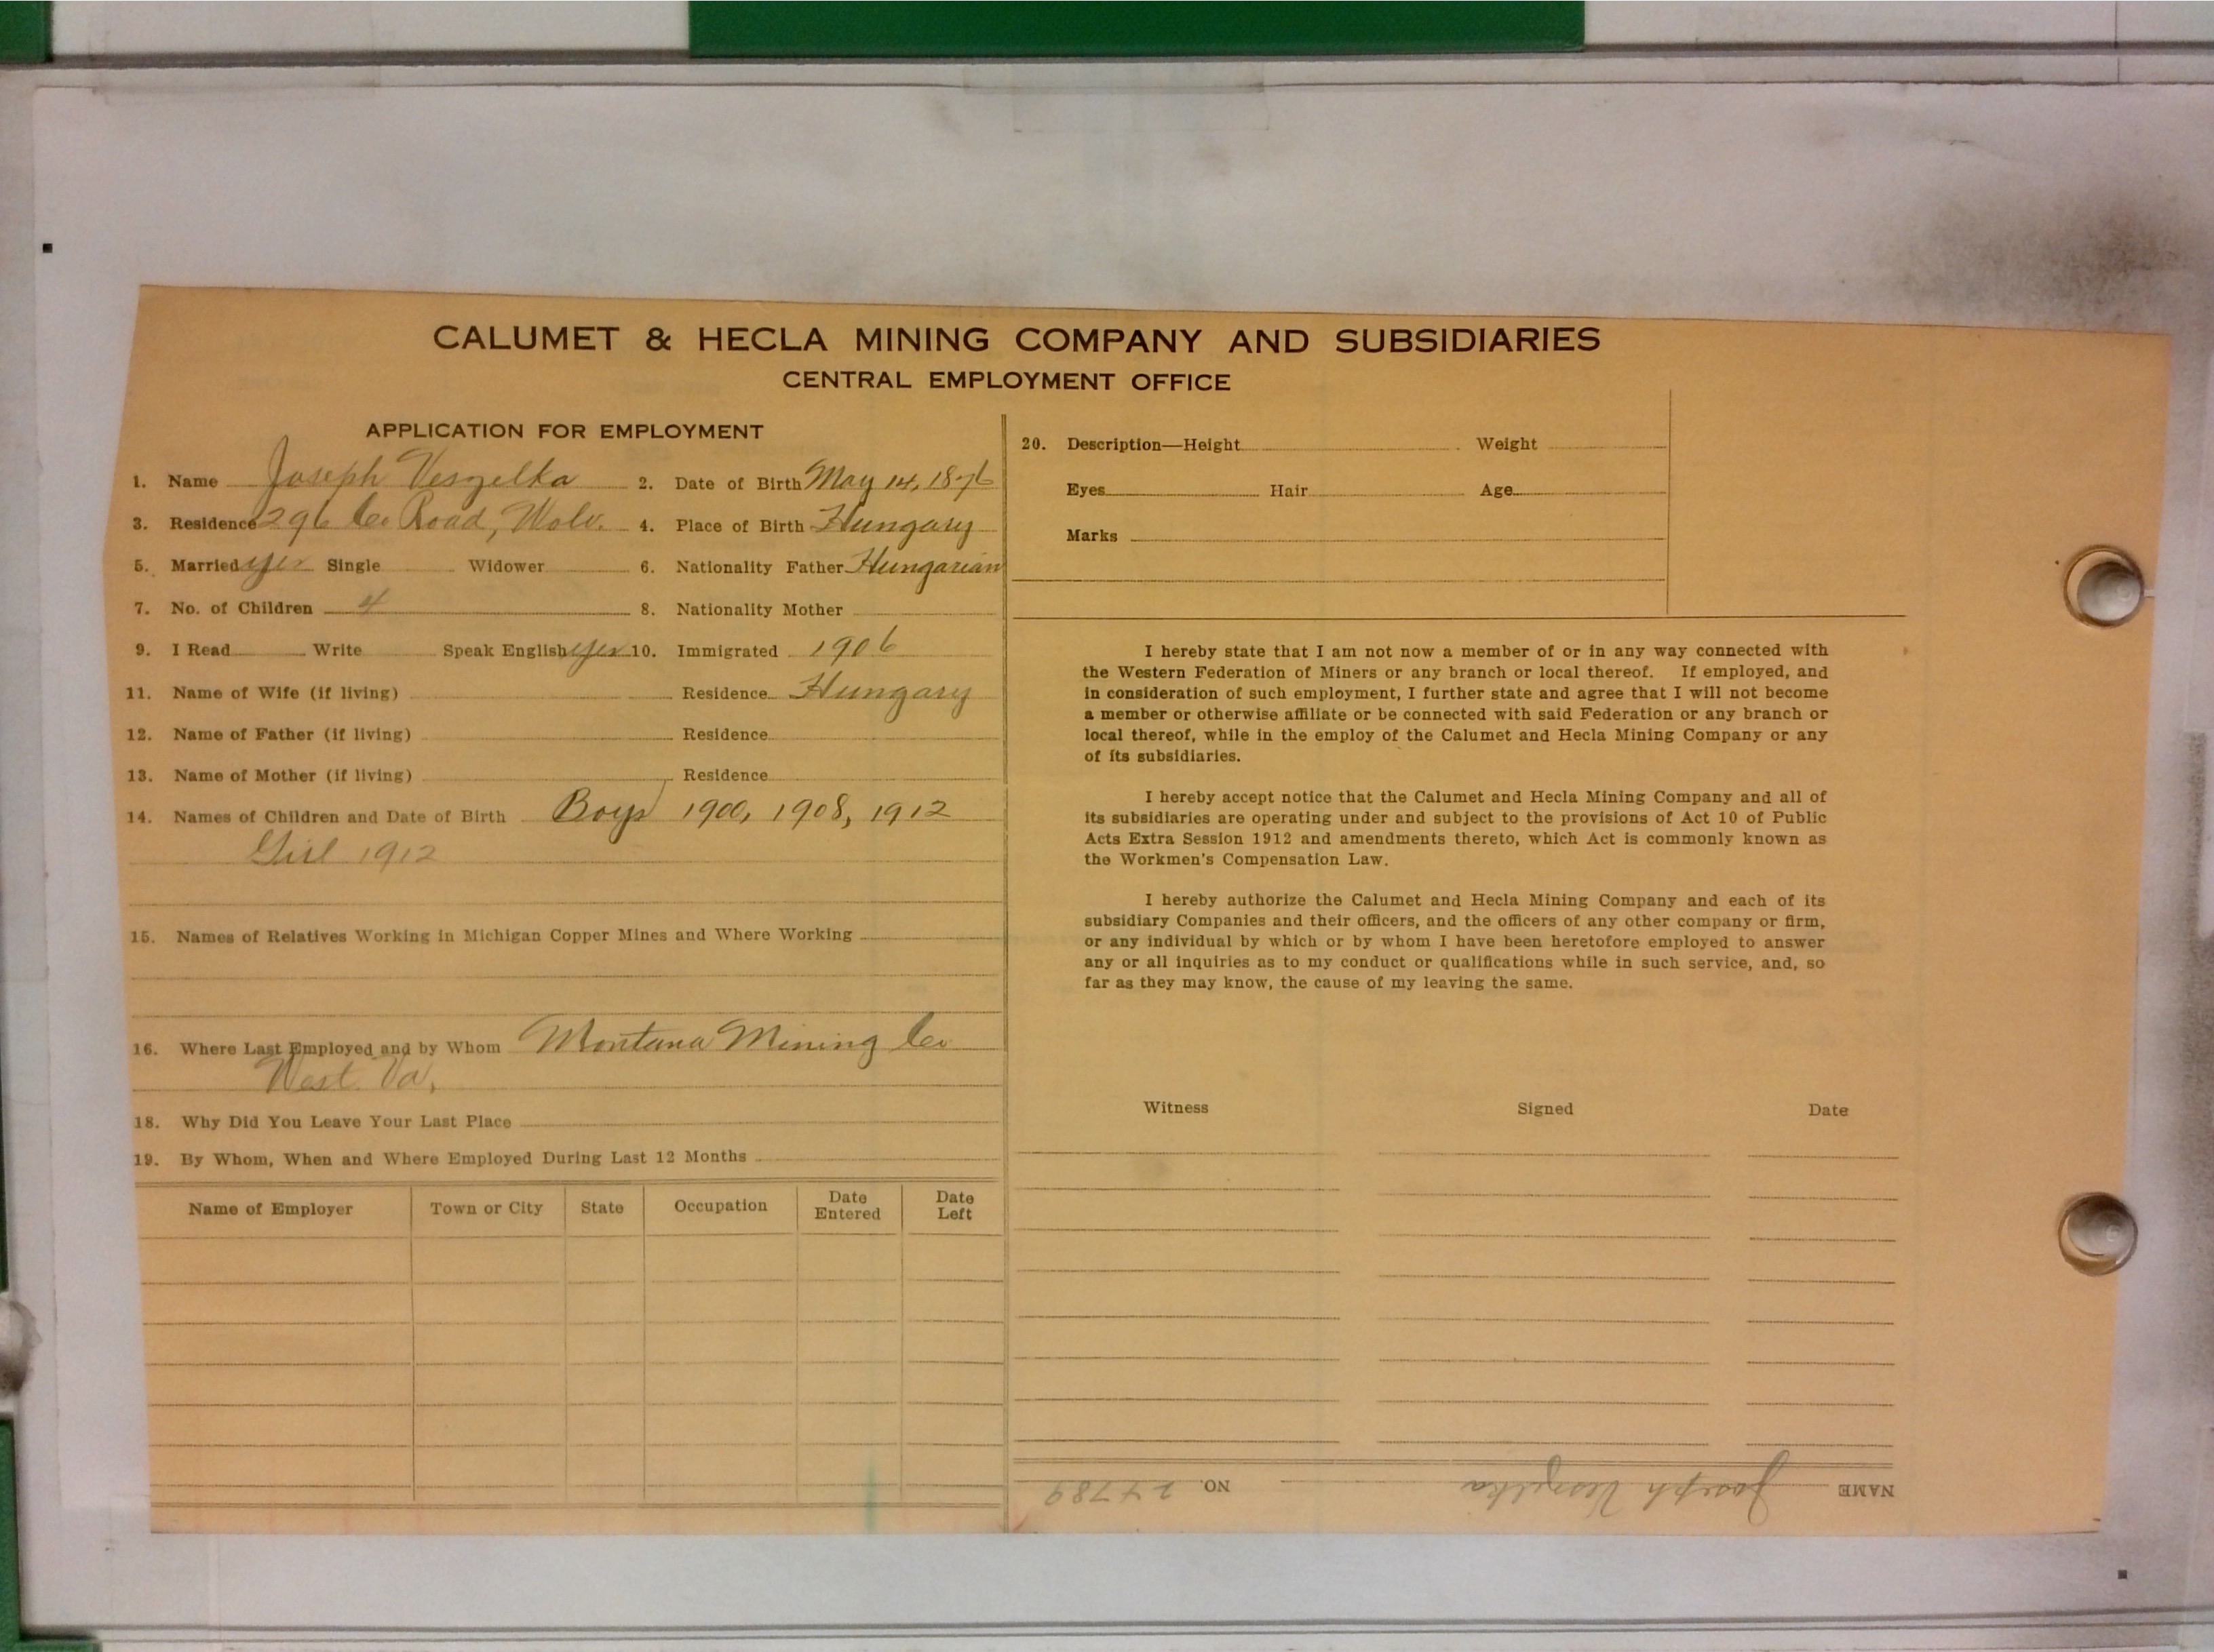 CALUMET & HECLA MINING COMPANY AND SUBSIDIARIES
CENTRAL EMPLOYMENT OFFICE
APPLICATION FOR EMPLOYMENT
1. Name Joseph Veszelka 2. Date of Birth May 14, 1876
3. Residence 296 Co Road, Wolv. 4. Place of Birth Hungary
5. Married yes Single Widower 6. Nationality Father Hungarian
7. No. of Children 4 8. Nationality Mother
9. I Read Write Speak English yes 10. Immigrated 1906
11. Name of Wife (if living) Residence Hungary
12. Name of Father (if living) Residence
13. Name of Mother (if living) Residence
14. Names of Children and Date of Birth Boys 1900, 1908, 1912
Girl 1912
15. Names of Relatives Working in Michigan Copper Mines and Where Working
16. Where Last Employed and by Whom Montana Mining Co
West. Va.
18. Why Did You Leave Your Last Place
19. By Whom, When and Where Employed During Last 12 Months
Name of Employer Town or City State Occupation Date Entered Date Left
20. Description—Height Weight
Eyes Hair Age
Marks
I hereby state that I am not now a member of or in any way connected with
the Western Federation of Miners or any branch or local thereof. If employed, and
in consideration of such employment, I further state and agree that I will not become
a member or otherwise affiliate or be connected with said Federation or any branch or
local thereof, while in the employ of the Calumet and Hecla Mining Company or any
of its subsidiaries.
I hereby accept notice that the Calumet and Hecla Mining Company and all of
its subsidiaries are operating under and subject to the provisions of Act 10 of Public
Acts Extra Session 1912 and amendments thereto, which Act is commonly known as
the Workmen's Compensation Law.
I hereby authorize the Calumet and Hecla Mining Company and each of its
subsidiary Companies and their officers, and the officers of any other company or firm,
or any individual by which or by whom I have been heretofore employed to answer
any or all inquiries as to my conduct or qualifications while in such service, and, so
far as they may know, the cause of my leaving the same.
Witness Signed Date
NAME Joseph Veszelka NO. 24789